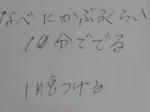 なべにかぶるくらい
10分ででる
1日つける